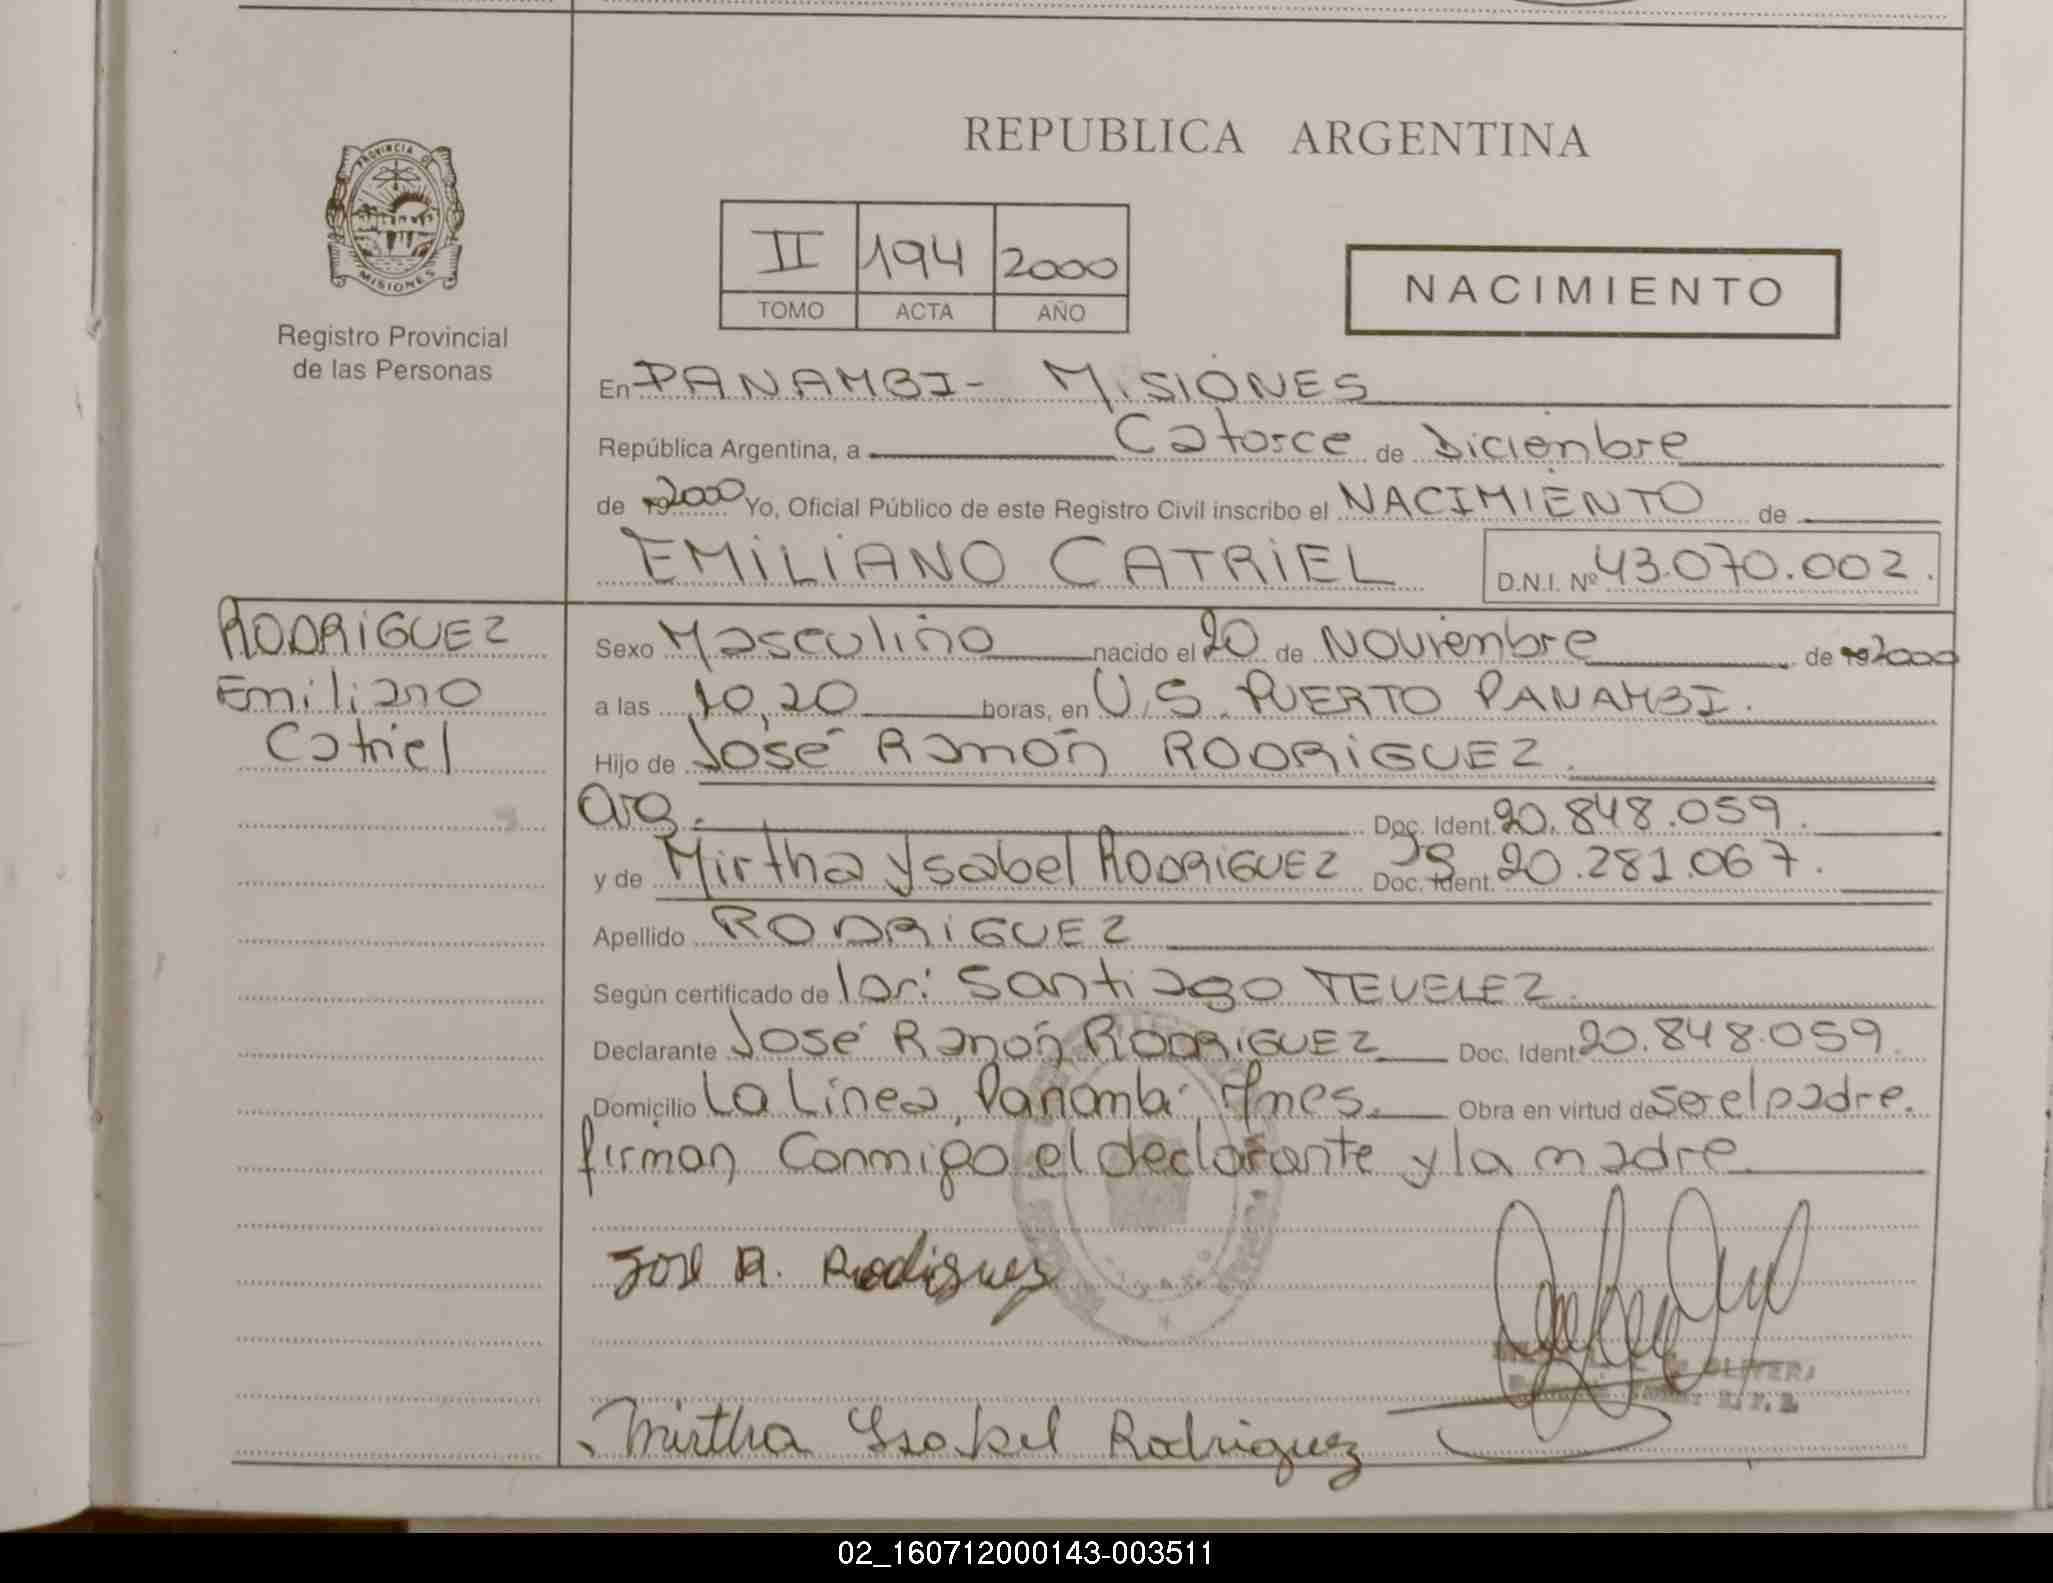 REPUBLICA ARGENTINA
PROVINCIA DE
MISIONES
Registro Provincial
de las Personas
II 194 2000
TOMO ACTA AÑO
NACIMIENTO
En PANAMBI- MISIONES
República Argentina, a Catorce de Diciembre
de 2000 Yo, Oficial Público de este Registro Civil inscribo el NACIMIENTO de
EMILIANO CATRIEL D.N.I. Nº 43.070.002.
RODRIGUEZ
Emiliano
Catriel
Sexo Masculino nacido el 20 de Noviembre de 2000
a las 10,20 horas, en U.S. PUERTO PANAMBI.
Hijo de José Ramón RODRIGUEZ.
Arg. Doc. Ident. 20.848.059.
y de Mirtha Ysabel RODRIGUEZ Doc. Ident. 20.281.067.
Apellido RODRIGUEZ
Según certificado de Santiago TEVELEZ.
Declarante José Ramón RODRIGUEZ Doc. Ident. 20.848.059.
Domicilio La Línea, Panambi, Mnes. Obra en virtud de ser el padre.
firman conmigo el declarante y la madre.
José R. Rodriguez
OLIVERA
Mirtha Ysabel Rodriguez
02_160712000143-003511